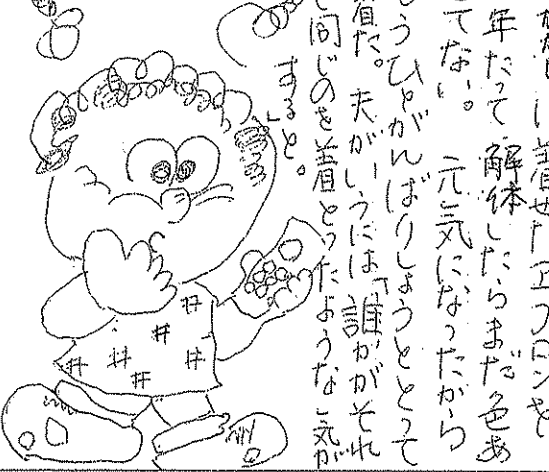 かかしに着せたエプロンを
年たって解体したらまだ色あ
てない。元気になったから
うひとがんばりしようととって
着だ。夫がいうには「誰かがそれ
同じのを着とったような気が
する」と。